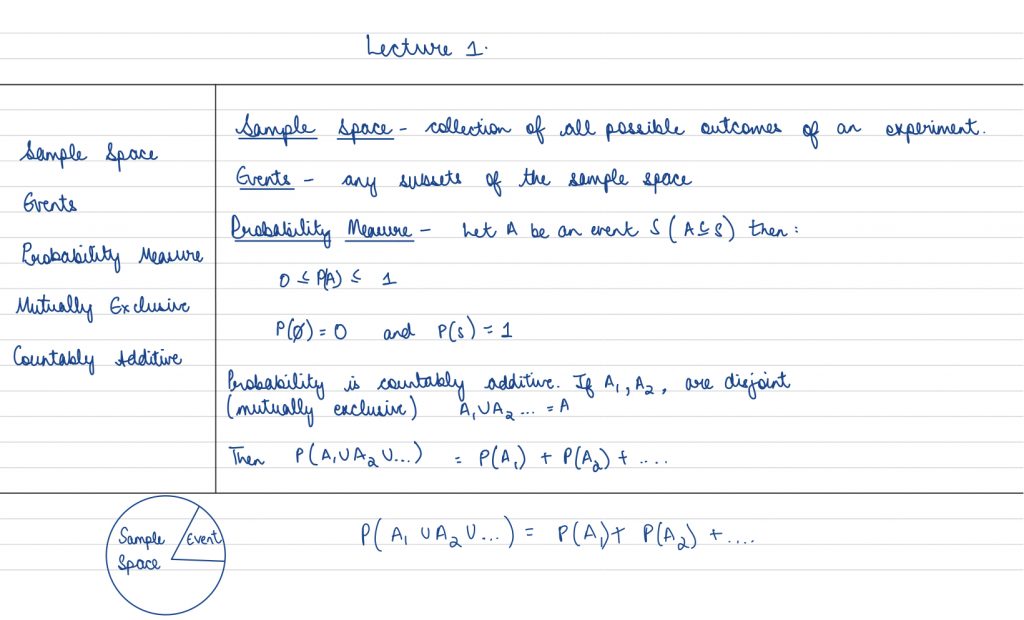 Lecture 1.
Sample Space
Events
Probability Measure
Mutually Exclusive
Countably Additive
Sample Space - collection of all possible outcomes of an experiment.
Events - any subsets of the sample space
Probability Measure - Let A be an event S (A⊆S) then :
0 ≤ P(A) ≤ 1
P(∅) = 0 and P(s) = 1
Probability is countably additive. If A₁, A₂, are disjoint
(mutually exclusive) A₁∪A₂ ... = A
Then P(A₁∪A₂∪...) = P(A₁) + P(A₂) + ....
Sample
Space
Event
P(A₁ ∪A₂∪...) = P(A₁)+ P(A₂) + ....